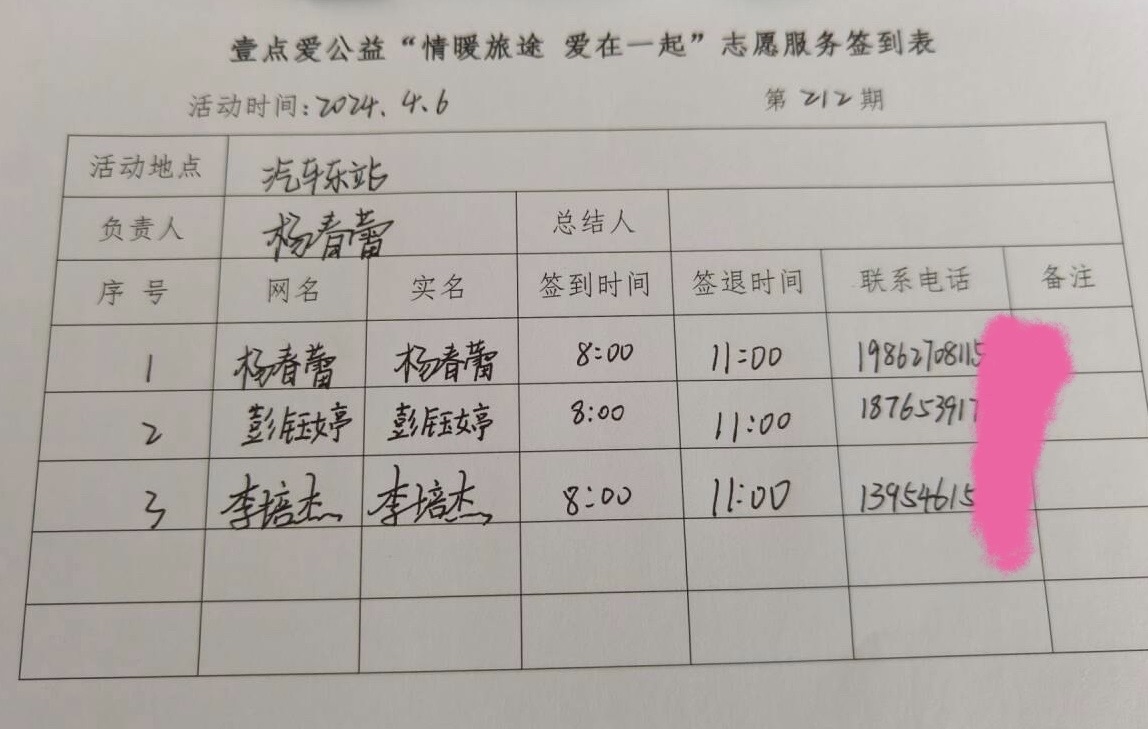 壹点爱公益“情暖旅途 爱在一起”志愿服务签到表
活动时间:2024.4.6 第212期
活动地点 汽车东站
负责人 杨春蕾 总结人
序号 网名 实名 签到时间 签退时间 联系电话 备注
1 杨春蕾 杨春蕾 8:00 11:00 19862708115
2 彭钰婷 彭钰婷 8:00 11:00 18765391
3 李培杰 李培杰 8:00 11:00 13954615